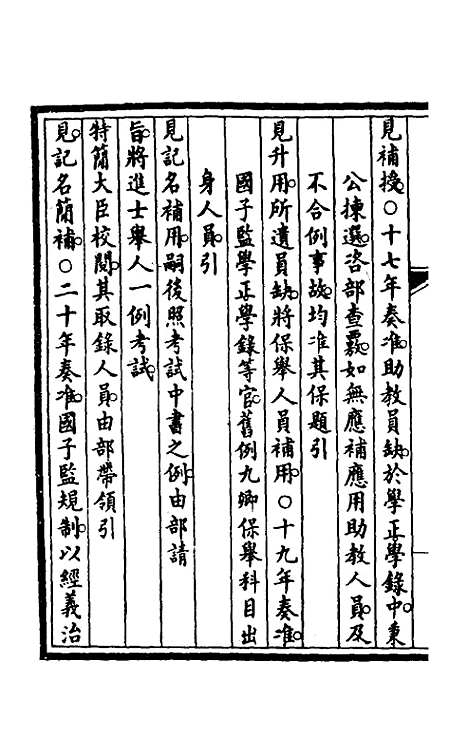 見補授。○十七年奏准。助教員缺。於學正學錄中。秉
公揀選。咨部查覈。如無應補應用助教人員。及
不合例事故。均准其保題引
見升用。所遺員缺。將保舉人員補用。○十九年奏准。
國子監學正學錄等官。舊例九卿保舉科目出
身人員。引
見記名補用。嗣後照考試中書之例。由部請
旨。將進士舉人一例考試。
特簡大臣校閱。其取錄人員。由部帶領引
見。記名簡補。○二十年奏准。國子監規制。以經義治